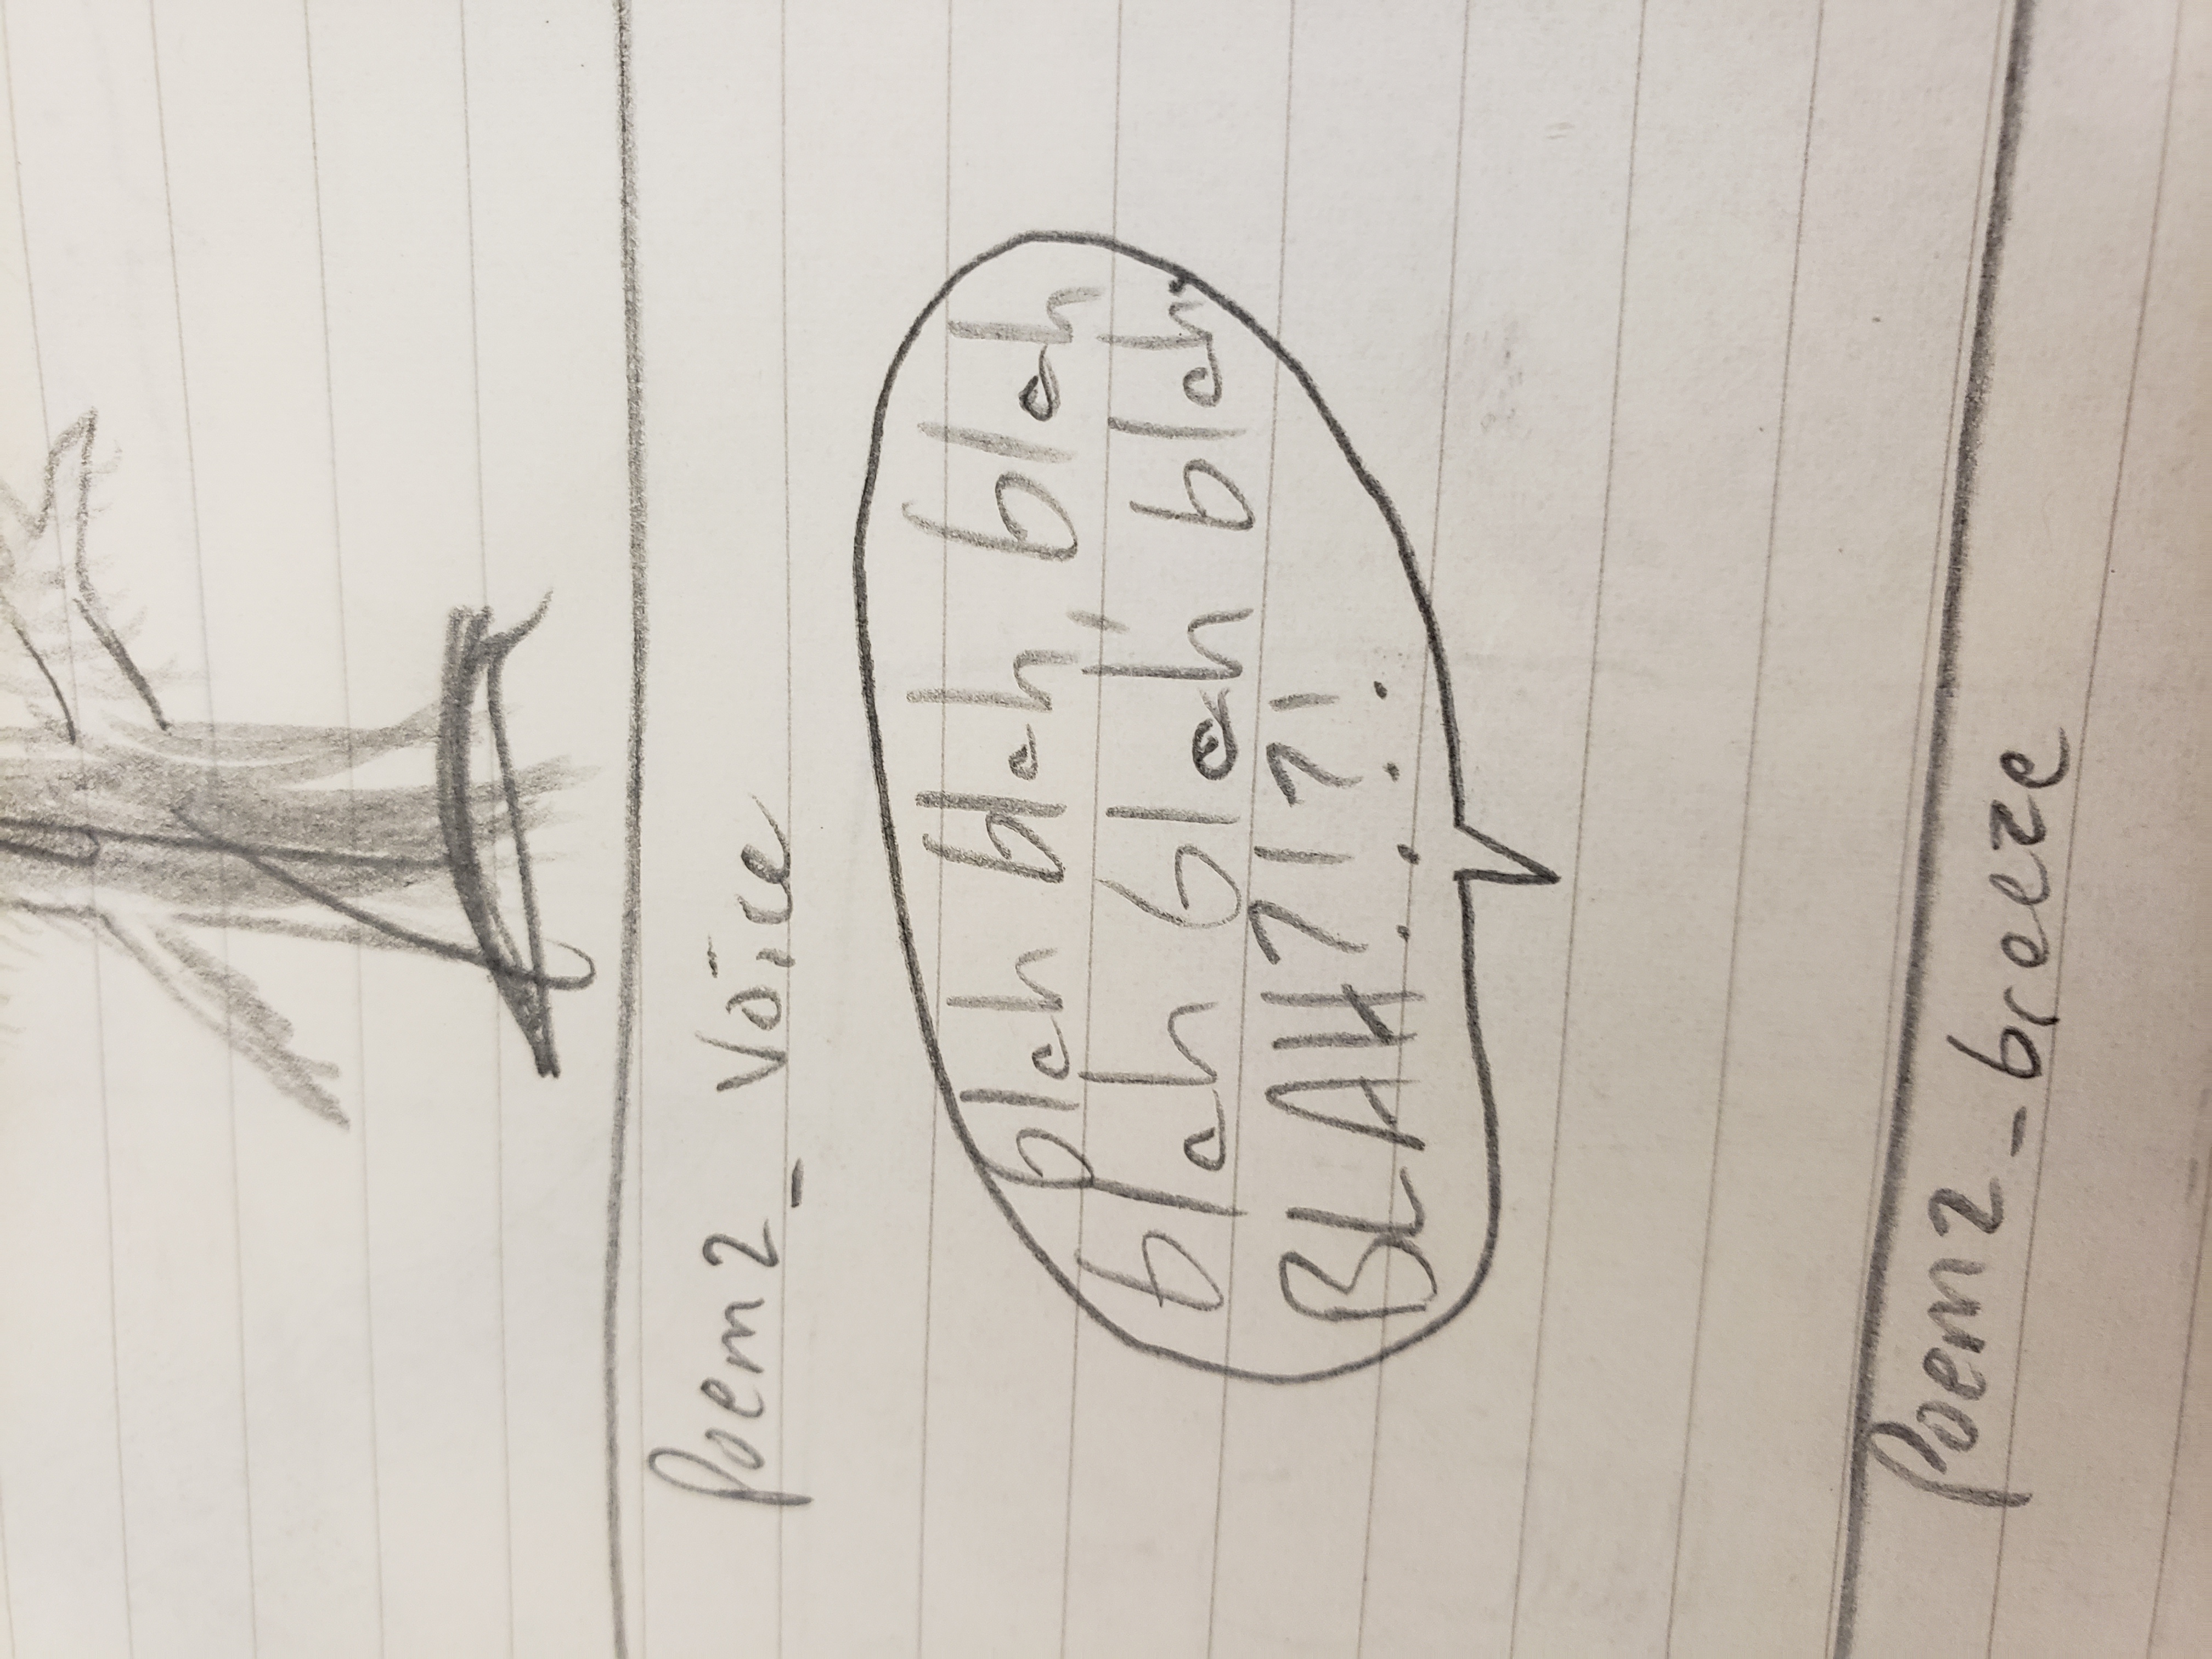 Poem2_ Voice
blah blah, blah
blah blah blah.
BLAH?!?!
Poem2_breeze